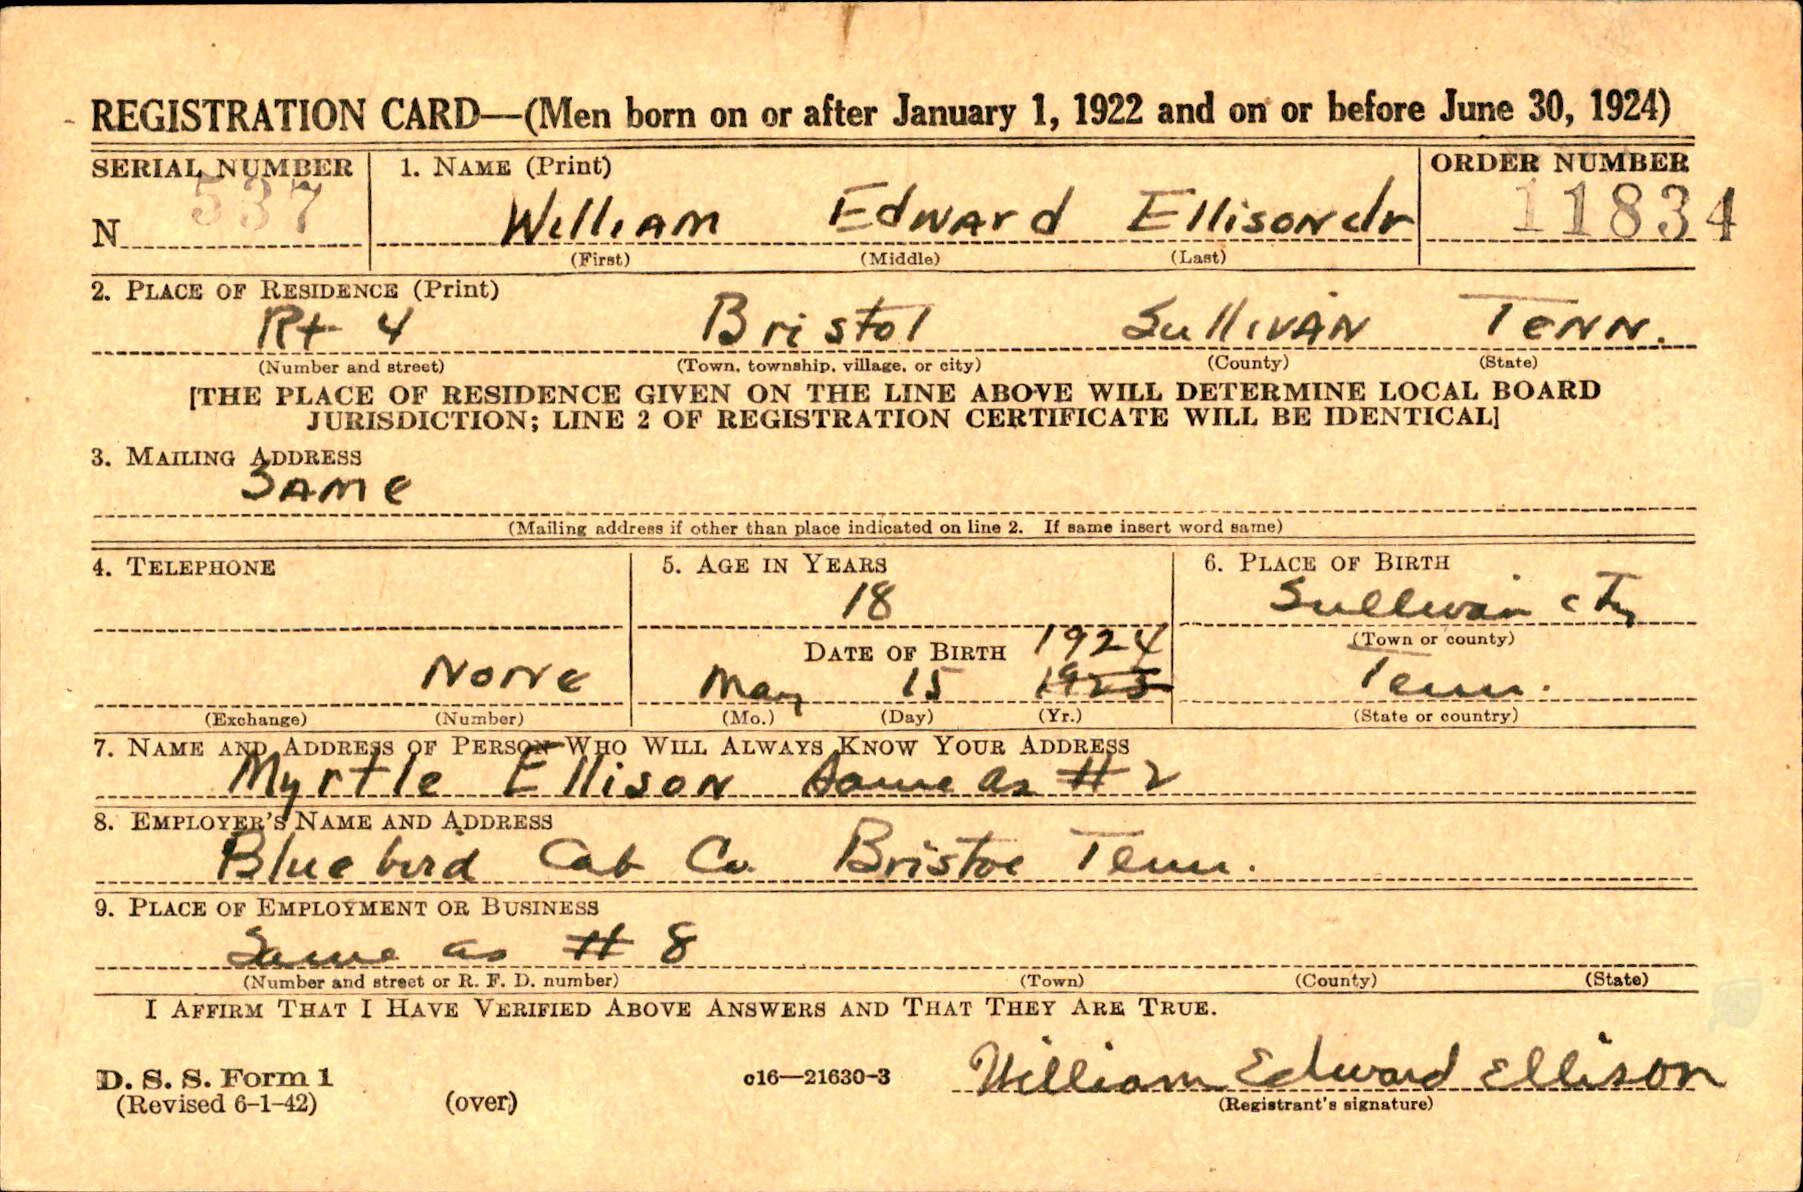 REGISTRATION CARD—(Men born on or after January 1, 1922 and on or before June 30, 1924)
SERIAL NUMBER 1. NAME (Print) ORDER NUMBER
N 537 William Edward Ellison Jr 11834
(First) (Middle) (Last)
2. PLACE OF RESIDENCE (Print)
Rt 4 Bristol Sullivan Tenn.
(Number and street) (Town, township, village, or city) (County) (State)
[THE PLACE OF RESIDENCE GIVEN ON THE LINE ABOVE WILL DETERMINE LOCAL BOARD
JURISDICTION; LINE 2 OF REGISTRATION CERTIFICATE WILL BE IDENTICAL]
3. MAILING ADDRESS
Same
(Mailing address if other than place indicated on line 2. If same insert word same)
4. TELEPHONE 5. AGE IN YEARS 6. PLACE OF BIRTH
18 Sullivan
DATE OF BIRTH 1924 (Town or county)
None May 15 1923 Tenn.
(Exchange) (Number) (Mo.) (Day) (Yr.) (State or country)
7. NAME AND ADDRESS OF PERSON WHO WILL ALWAYS KNOW YOUR ADDRESS
Myrtle Ellison Same as # 2
8. EMPLOYER'S NAME AND ADDRESS
Blue bird Cab Co. Bristol Tenn.
9. PLACE OF EMPLOYMENT OR BUSINESS
Same as # 8
(Number and street or R. F. D. number) (Town) (County) (State)
I AFFIRM THAT I HAVE VERIFIED ABOVE ANSWERS AND THAT THEY ARE TRUE.
D. S. S. Form 1 c16—21630-3 William Edward Ellison
(Revised 6-1-42) (over) (Registrant's signature)